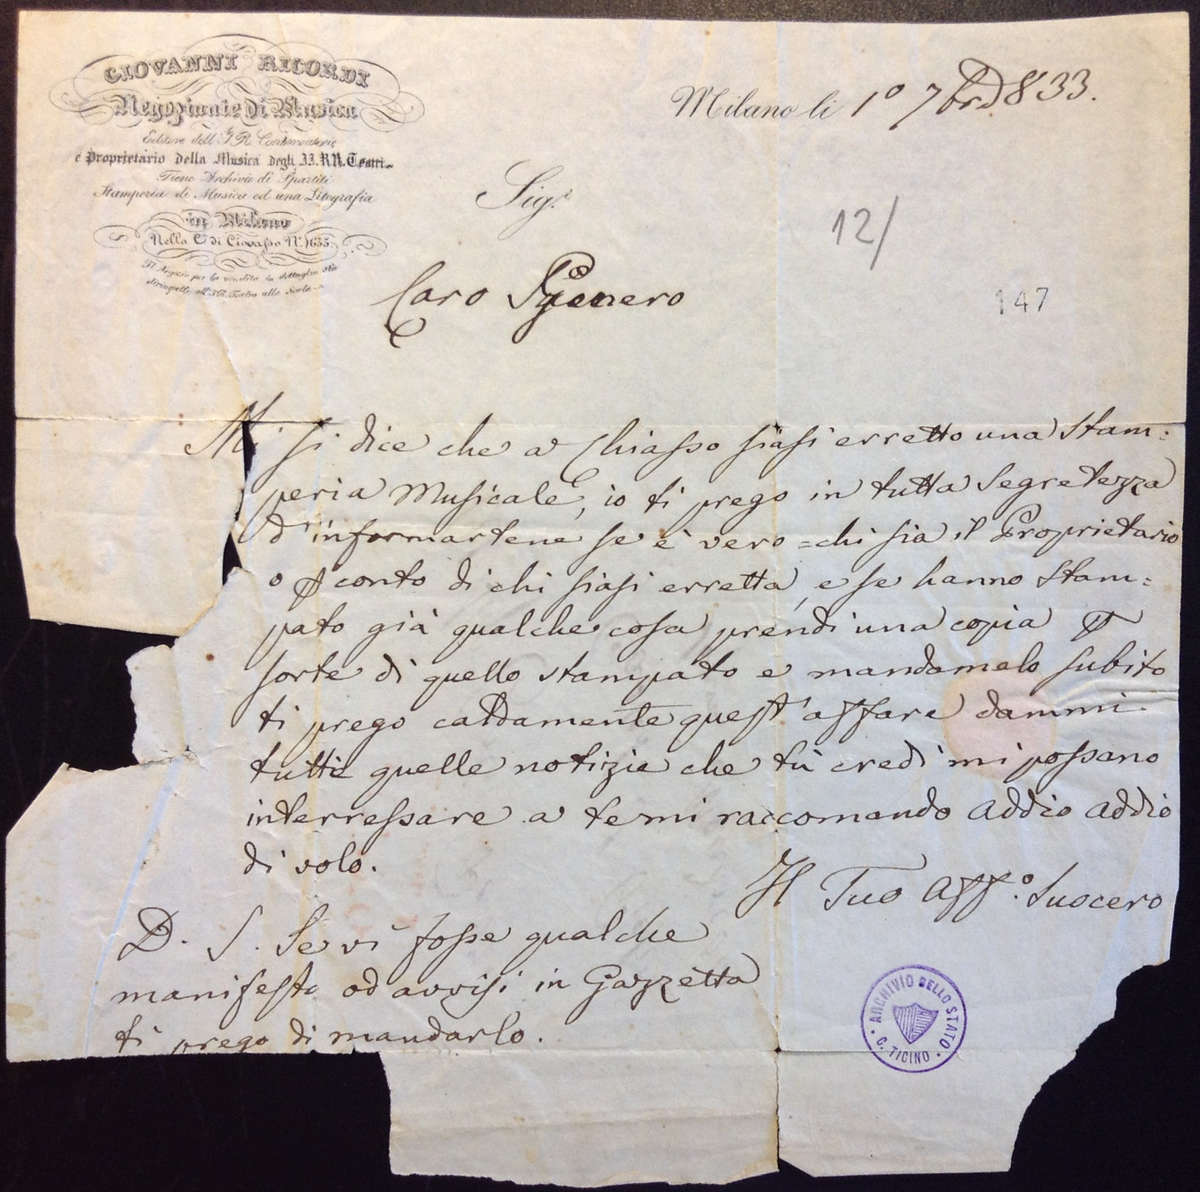 GIOVANNI RICORDI
Negoziante di Musica
Editore dell'I. R. Conservatorio
e Proprietario della Musica degli II. RR. Teatri
Tiene Archivio di Spartiti
Stamperia di Musica ed una Litografia
in Milano
Nella C.a di Ciovasso N.° 1635
Il Negozio per la vendita in dettaglio sta
dirimpetto all'I. R. Teatro alla Scala
Milano li 1° 7brd 833.
Sig.r
12/
147
Caro genero
Mi si dice che a Chiasso siasi erretto una stam=
peria Musicale, io ti prego in tutta segretezza
d'informartene se è vero = chi sia il Proprietario
o p conto di chi siasi erretta, e se hanno stam=
pato già qualche cosa prendi una copia p
sorte di quello stampato e mandamelo subito
ti prego caldamente quest'affare dammi
tutte quelle notizie che tù credi mi possano
interressare a te mi raccomando addio addio
di volo.
Il Tuo Aff.o Suocero
D. S. Se vi fosse qualche
manifesto od avvisi in Gazzetta
ti prego di mandarlo.
ARCHIVIO DELLO STATO
C. TICINO